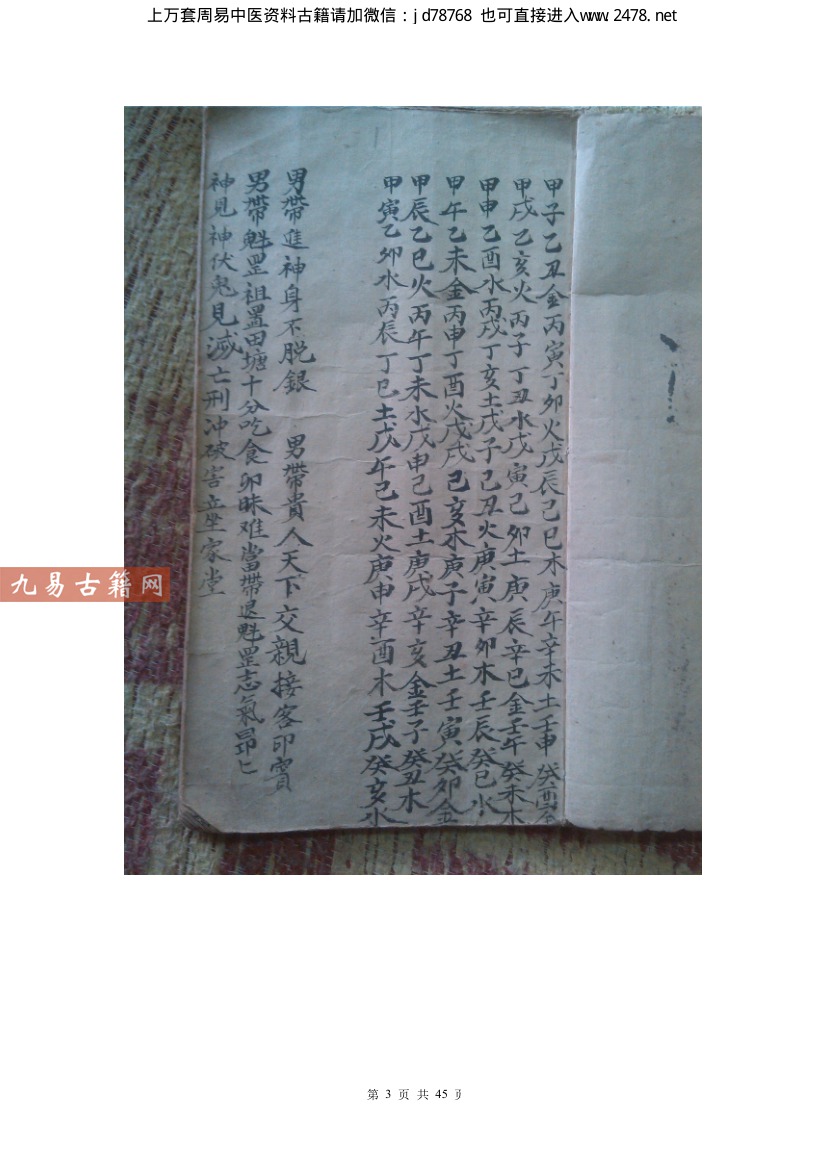 上万套周易中医资料古籍请加微信：jd78768 也可直接进入www.2478.net
甲子乙丑金丙寅丁卯火戊辰己巳木庚午辛未土壬申癸酉金
甲戌乙亥火丙子丁丑水戊寅己卯土庚辰辛巳金壬午癸未木
甲申乙酉水丙戌丁亥土戊子己丑火庚寅辛卯木壬辰癸巳水
甲午乙未金丙申丁酉火戊戌己亥木庚子辛丑土壬寅癸卯金
甲辰乙巳火丙午丁未水戊申己酉土庚戌辛亥金壬子癸丑木
甲寅乙卯水丙辰丁巳土戊午己未火庚申辛酉木壬戌癸亥水
男帶進神身不脱銀 男帶貴人天下交親接客印賓
男帶魁罡祖置田塘十分吃食卯昧难當帶退魁罡志氣昻匕
神見神伏鬼見滅亡刑冲破害立坐家堂
九易古籍网
第 3 页 共 45 页